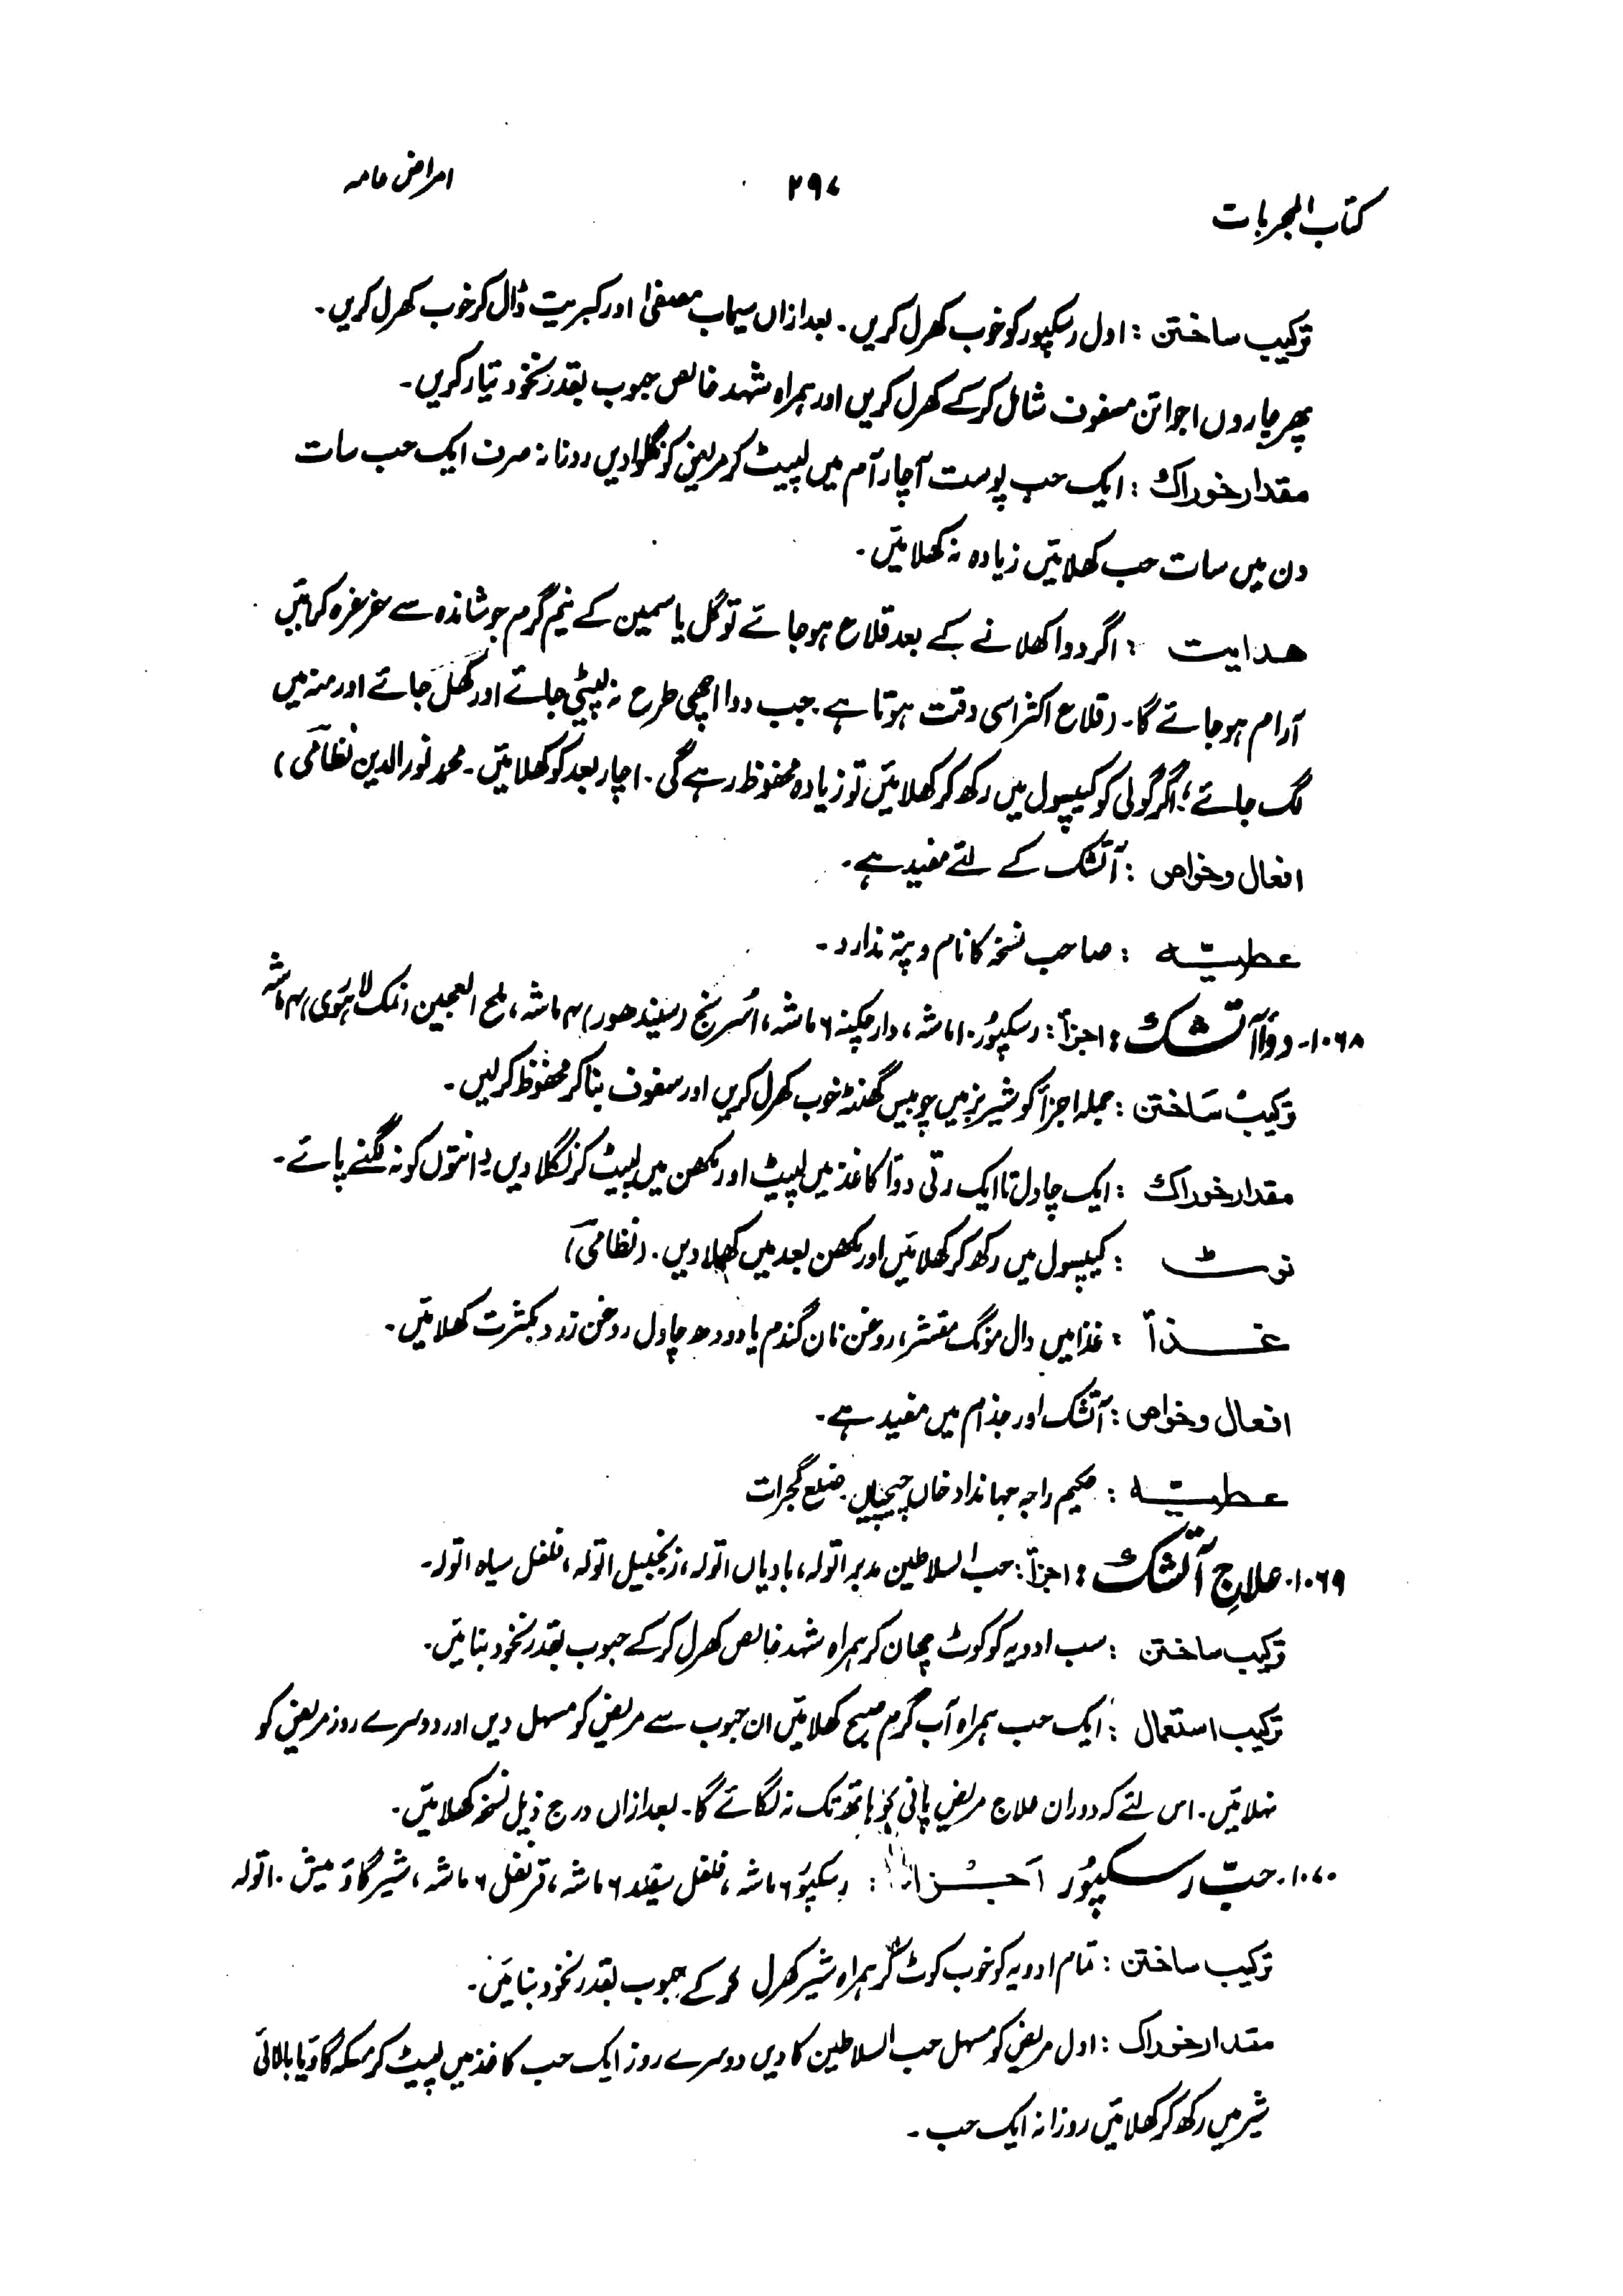 کتاب المجربات
۲۹۷
امراض عامہ
ترکیب ساختن : اول رسکپور کو خوب کھرل کریں۔ بعد ازاں سیماب مصفیٰ اور کبریت ڈال کر خوب کھرل کریں۔
پھر چاروں اجوائن سفوف شامل کرکے کھرل کریں اور ہمراہ شہد خالص حبوب بقدر نخود تیار کریں۔
مقدار خوراک : ایک حب پوست آچار آم میں لپیٹ کر مریض کو نگلوا دیں روزانہ صرف ایک حب سات
دن میں سات حب کھلائیں زیادہ نہ کھلائیں۔
ھدایت : اگر دوا کھلانے کے بعد قلاع ہوجائے تو گل یاسمین کے نیم گرم جوشاندہ سے غرغرہ کرائیں
آرام ہوجائے گا۔ (قلاع اکثر اسی وقت ہوتا ہے۔ جب دوا اچھی طرح نہ لپیٹی جائے اور گھل جائے اور منہ میں
لگ جائے؛ اگر گولی کو کیپسول میں رکھ کر کھلائیں تو زیادہ محفوظ رہے گی۔ اچار بعد کو کھلائیں۔ محمد نور الدین نظامی)
افعال و خواص : آتشک کے لئے مفید ہے۔
عطیہ : صاحب نسخہ کا نام و پتہ ندارد۔
۱۰۶۸۔ دوأ آتشک : اجزأ : رسکپور ۱۰ ماشہ، دارچکنہ ۶ ماشہ، اسرنج (سیندھور) ۴ ماشہ، ملح العجین (نمک لاہوری) ۴ ماشہ
ترکیب ساختن : جملہ اجزأ کو شیر بز میں چوبیس گھنٹہ خوب کھرل کریں اور سفوف بنا کر محفوظ کرلیں۔
مقدار خوراک : ایک چاول تا ایک رتی دوأ کاغذ میں لپیٹ اور مکھن میں لپیٹ کر نگلا دیں۔ دانتوں کو نہ لگنے پائے۔
نوٹ : کیپسول میں رکھ کر کھلائیں اور مکھن بعد میں کھلا دیں۔ (نظامی)
غذأ : غذا میں دال مونگ مقشر، روغن نان گندم یا دودھ چاول روغن زرد بکثرت کھلائیں۔
افعال و خواص : آتشک اور جذام میں مفید ہے۔
عطیہ : حکیم راجہ جہانداد خاں چیچیاں۔ ضلع گجرات
۱۰۶۹۔ علاج آتشک : اجزأ : حب السلاطین مدبر ۱ تولہ، بادیاں ۱ تولہ، زنجبیل ۱ تولہ، فلفل سیاہ ۱ تولہ۔
ترکیب ساختن : سب ادویہ کو کوٹ چھان کر ہمراہ شہد خالص کھرل کرکے حبوب بقدر نخود بنائیں۔
ترکیب استعمال : ایک حب ہمراہ آب گرم صبح کھلائیں ان حبوب سے مریض کو مسہل دیں اور دوسرے روز مریض کو
نہلائیں۔ اس لئے کہ دوران علاج مریض پانی کو ہاتھ تک نہ لگائے گا۔ بعد ازاں درج ذیل نسخہ کھلائیں۔
۱۰۷۰۔ حبّ رسکپور اجزأ : رسکپور ۶ ماشہ، فلفل سفید ۶ ماشہ، قرنفل ۶ ماشہ، شیر گاؤمیش ۱۰ تولہ
ترکیب ساختن : تمام ادویہ کو خوب کوٹ کر ہمراہ شیر کھرل کرکے حبوب بقدر نخود بنائیں۔
مقدار خوراک : اول مریض کو مسہل حب السلاطین کا دیں دوسرے روز ایک حب کاغذ میں لپیٹ کر مسکہ گاؤ یا بالائی
شیر میں رکھ کر کھلائیں روزانہ ایک حب۔